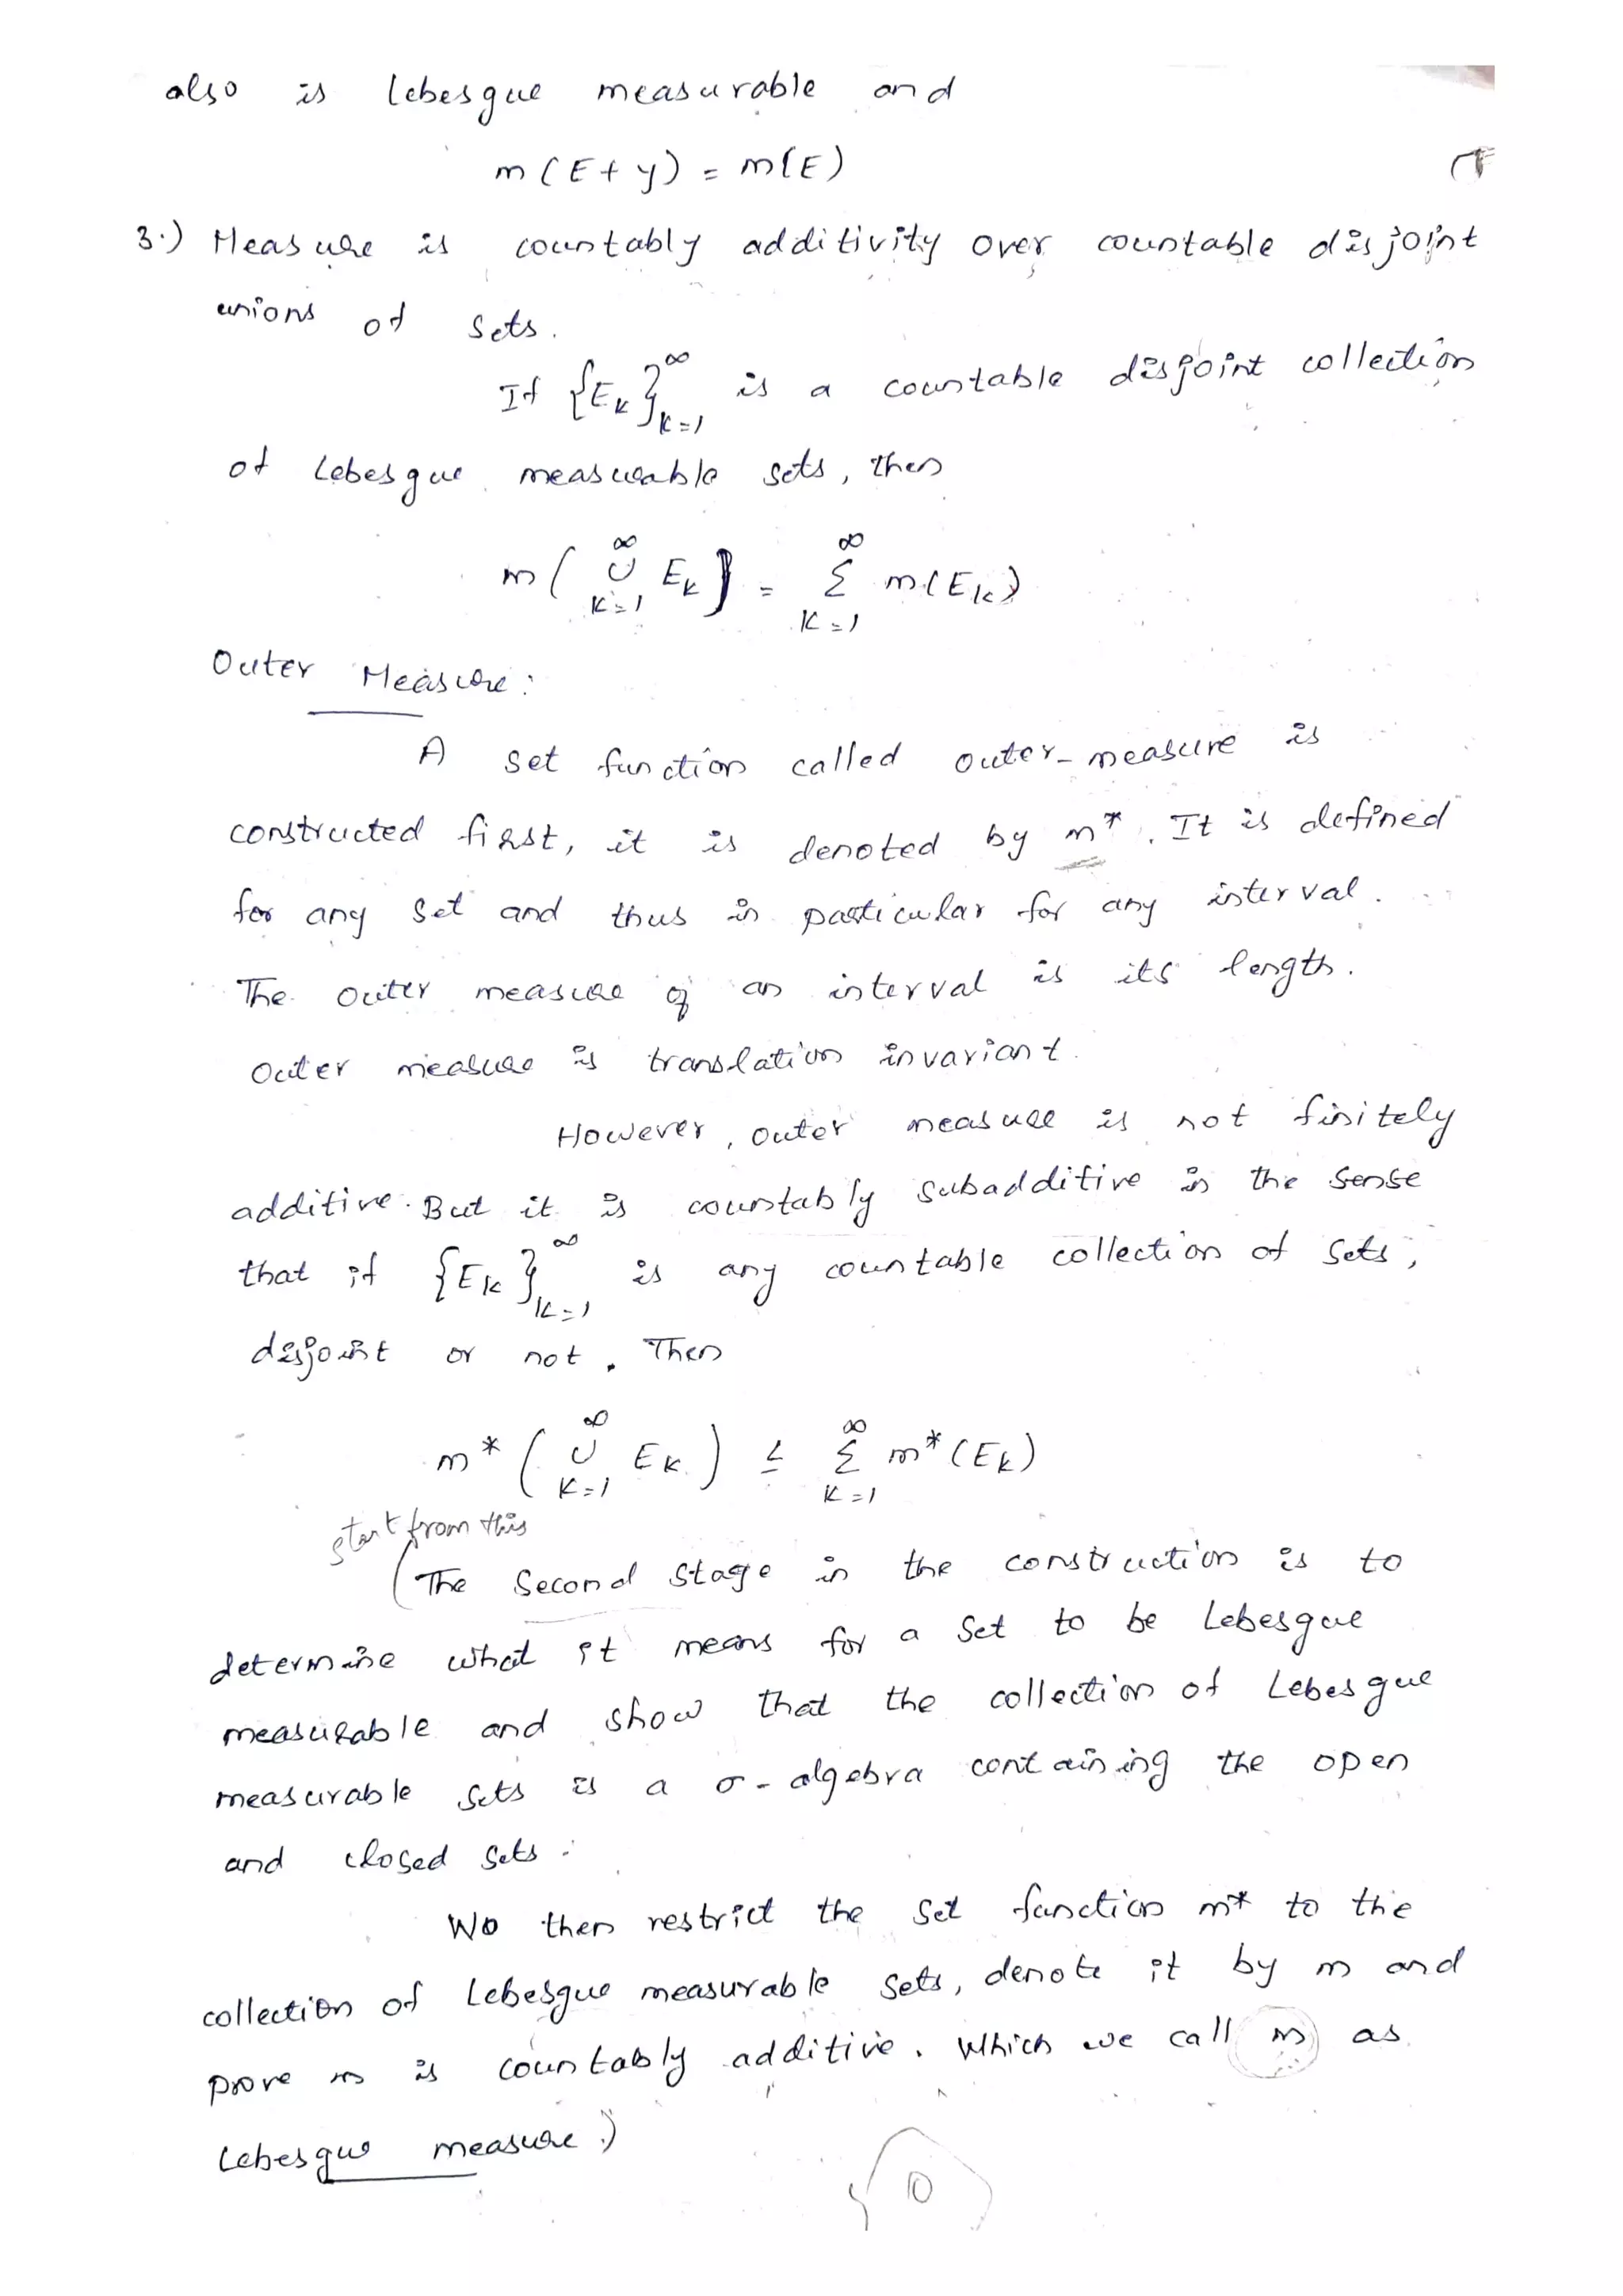 also is lebesgue measurable and
m(E+y) = m(E)
3.) Measure is countably additivity over countable disjoint
unions of sets.
If {E_k}_{k=1}^∞ is a countable disjoint collection
of Lebesgue measurable sets, then
m(∪_{k=1}^∞ E_k) = Σ_{k=1}^∞ m(E_k)
Outer Measure:
A set function called outer-measure is
constructed first, it is denoted by m*. It is defined
for any set and thus in particular for any interval.
The outer measure of an interval is its length.
Outer measure is translation invariant.
However, outer measure is not finitely
additive. But it is countably subadditive in the sense
that if {E_k}_{k=1}^∞ is any countable collection of sets,
disjoint or not. Then
m*(∪_{k=1}^∞ E_k) ≤ Σ_{k=1}^∞ m*(E_k)
start from this
(The Second stage in the construction is to
determine what it means for a set to be Lebesgue
measurable and show that the collection of Lebesgue
measurable sets is a σ-algebra containing the open
and closed sets.
We then restrict the set function m* to the
collection of Lebesgue measurable sets, denote it by m and
prove m is countably additive. Which we call m as
Lebesgue measure.)